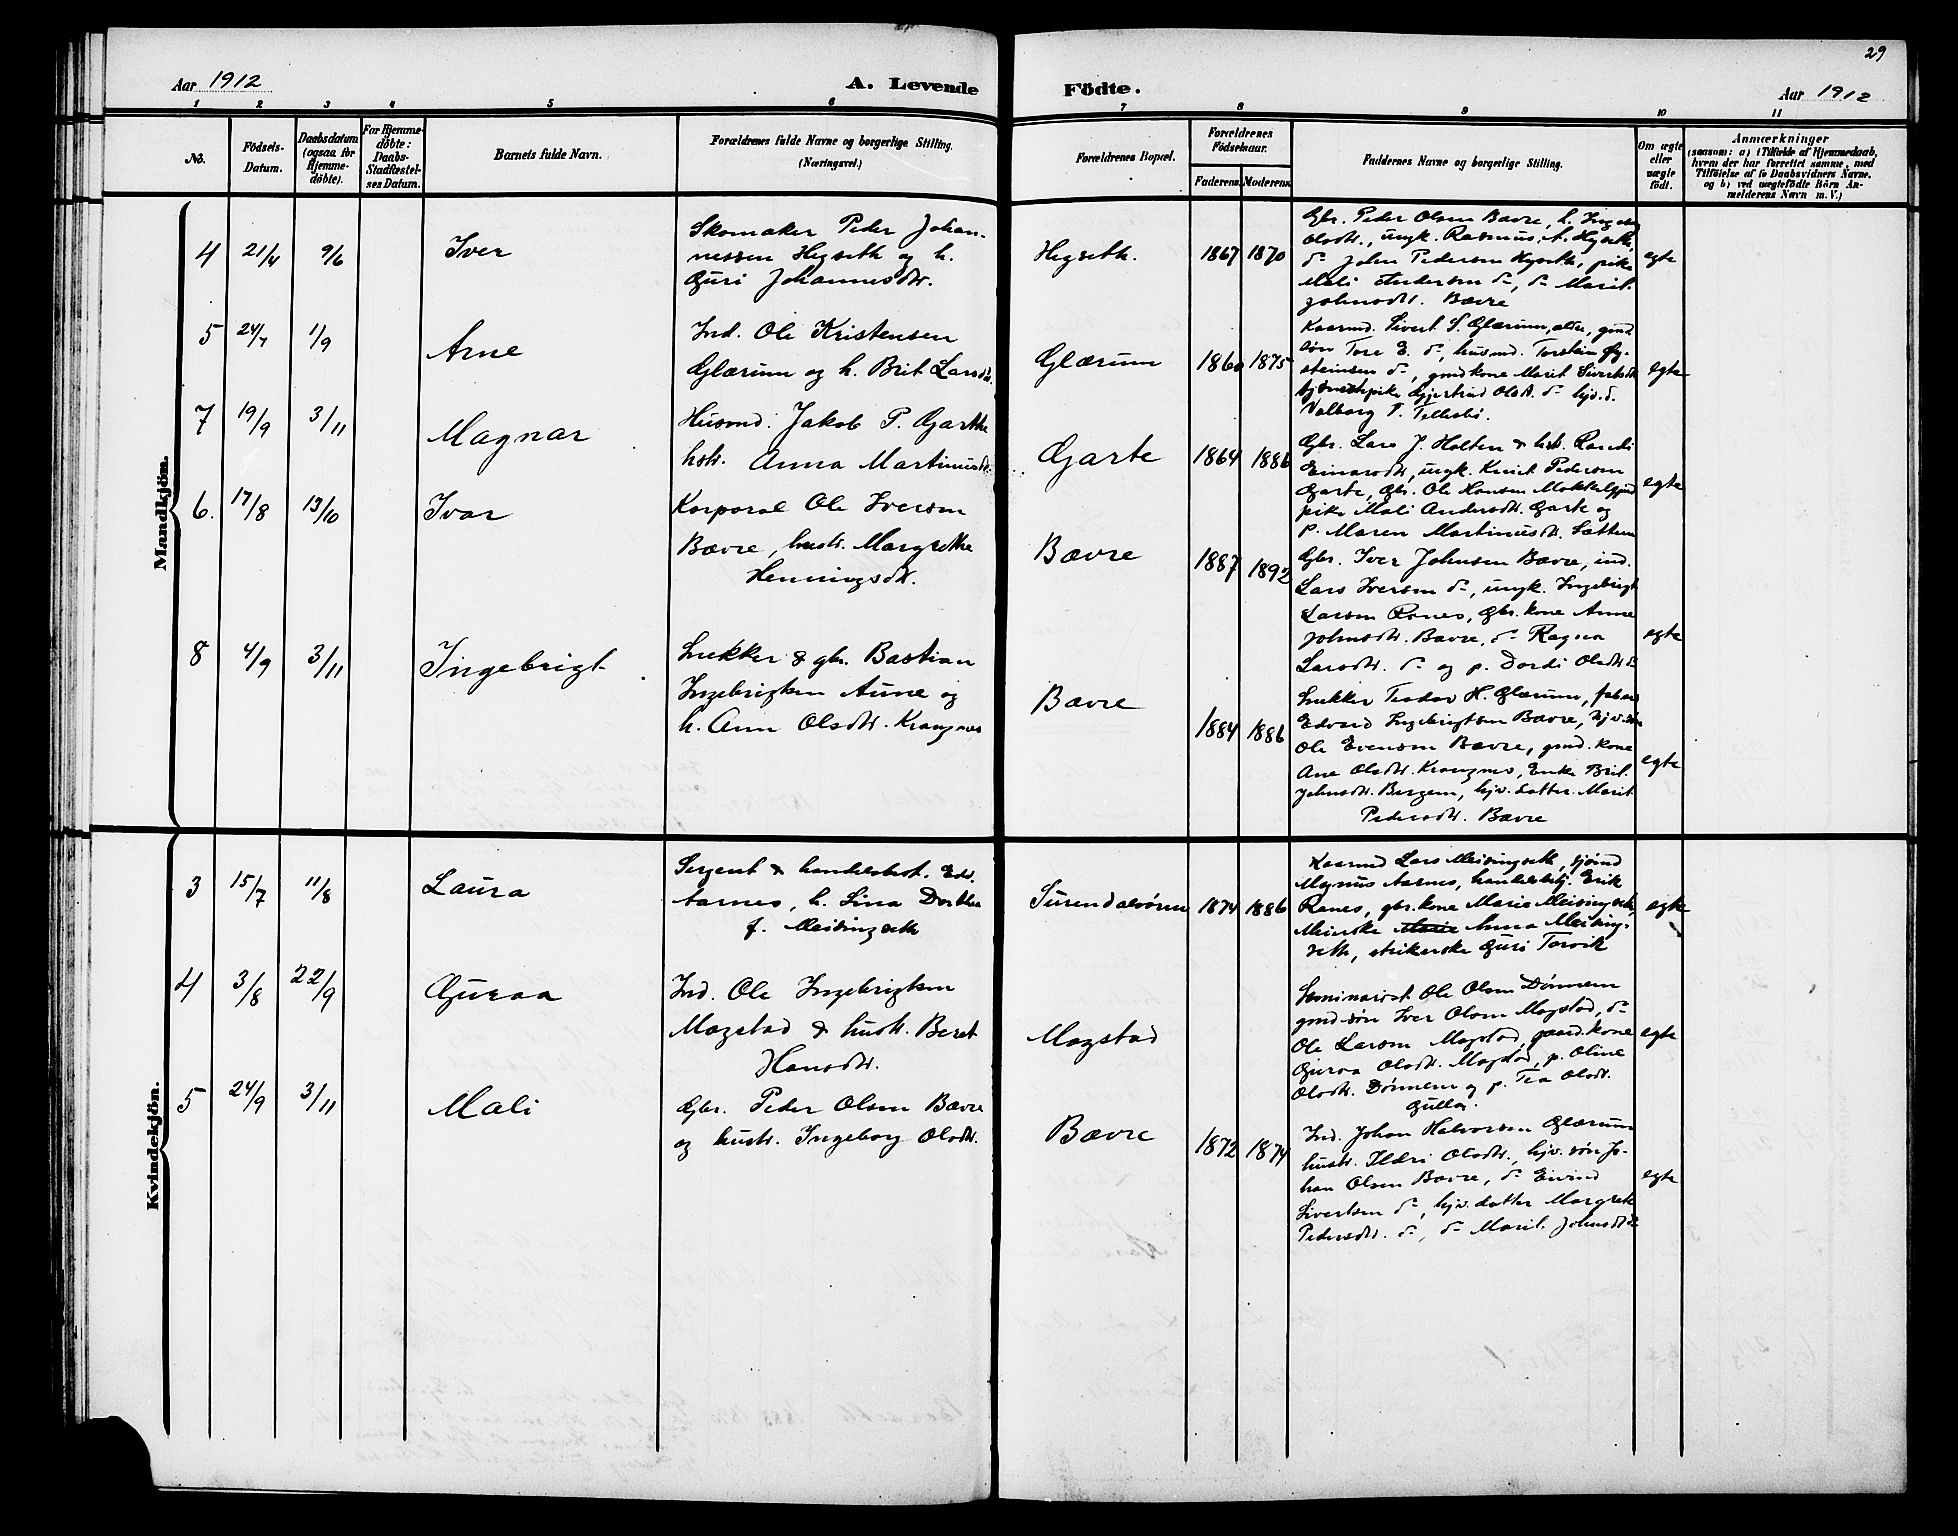 29
Aar 1912
A. Levende
Födte.
Aar 1912
1 2 3 4 5 6 7 8 9 10 11
No.
Födsels-
Datum.
Daabsdatum
(ogsaa for
Hjemme-
döbte).
For Hjemme-
döbte:
Daabs-
Stadfæstel-
ses Datum.
Barnets fulde Navn.
Forældrenes fulde Navne og borgerlige Stilling.
(Næringsvei.)
Forældrenes Bopæl.
Forældrenes
Födselsaar.
Faderens. Moderens.
Faddernes Navne og borgerlige Stilling.
Om ægte
eller
uægte
födt.
Anmærkninger
(saasom: a) i Tilfælde af Hjemmedaab,
hvem der har forrettet samme, med
Tilföielse af to Daabsvidners Navne,
og b) ved uægtefödte Börn An-
melderens Navn m. V.)
Mandkjön.
4 21/4 9/6 Iver
Skomaker Peder Johan-
nessen Hegseth og h.
Guri Johannesdtr.
Hegseth. 1867 1870
Gbr. Peder Olsen Bævre, h. Ingebg
Olsdtr., ungk. Rasmus A. Hegseth,
d- John Pedersen Hegseth, pike
Mali Andersen d-, d- Marit
Johnsdtr. Bævre
egte
5 24/7 1/9 Arne
Ind. Ole Kristensen
Glærum og h. Brit Larsdtr.
Glærum 1860 1875
Kaarmd. Sivert S. Glærum, gmd.
søn Tore E. d-, husmd. Torstein Øy-
steinsen d-, gmdkone Marit Sivertsdtr
pike Gjertrud Olsdt. d- hjv. d.
Valborg T. Tellesbø.
egte
7 19/9 3/11 Magnar
Husmd. Jakob P. Garthe
hstr. Anna Martinusdtr.
Garte 1864 1886
Gbr. Lars J. Holten & hstr. Randi
Einarsdtr., ungk. Knut Pedersen
Garte, Gbr. Ole Hansen
pike Mali Andersdtr. Garte og
p. Maren Martinusdt. Sættem
egte
6. 17/8 13/10 Ivar
Korporal Ole Iversen
Bævre, hustr. Margrethe
Henningsdt.
Bævre 1887 1892
Gbr. Iver Johnsen Bævre, ind.
Lars Iversen d-, ungk. Ingebrigt
Larsen Ranes, Gbr. kone Anne
Johnsdtr. Bævre, d- Ragna
Larsdtr. d- og p. Dordi Olsdtr d-
egte
8 4/9 3/11 Ingebrigt
Snekker & gbr. Bastian
Ingebrigtsen Aune og
h. Ann Olsdtr. Krangnes
Bævre 1884 1886
Snekker Teodor H. Glærum,
Edvard Ingebrigtsen Bævre, hjv. søn
Ole Evensen Bævre, gmd. kone
Ane Olsdtr. Krangnes, Enke Brit
Johnsdt. Bergem, hjv. datter Marit
Pedersdtr. Bævre
egte
Kvindekjön.
3 15/7 11/8 Laura
Sergent & handelsbest. Edv.
Aarnes, h. Lina Dorthea
f. Meisingseth
Surendalsøren 1874 1886
Kaarmd Lars Meisingseth,
Magnus Aarnes, handelsbtj. Erik
Ranes, gbr. kone Marie Meisingseth,
Meierske Marie Anna Meising-
seth, strikerske Guri Torvik
egte
4 3/8 22/9 Guroa
Ind. Ole Ingebrigtsen
Mogstad & hustr. Beret
Hansdtr.
Mogstad
Seminarist Ole Olsen Dønnem
gmd. søn Iver Olsen Mogstad, d-
Ole Larsen Mogstad, gaard. kone
Guroa Olsdtr. Mogstad, p. Oline
Olsdtr. Dønnem og p. Tea Olsdt.
Gulla.
egte
5 24/9 3/11 Mali
Gbr. Peder Olsen Bævre
og hustr. Ingeborg Olsdtr.
Bævre 1872 1874
Ind. Johan Halvorsen Glærum
hustr. Ildri Olsdtr., hjv. søn Jo-
han Olsen Bævre, d- Eivind
Sivertsen d-, hjv. datter Margrete
Pedersdtr. d-, d- Marit Johnsdt d-
egte